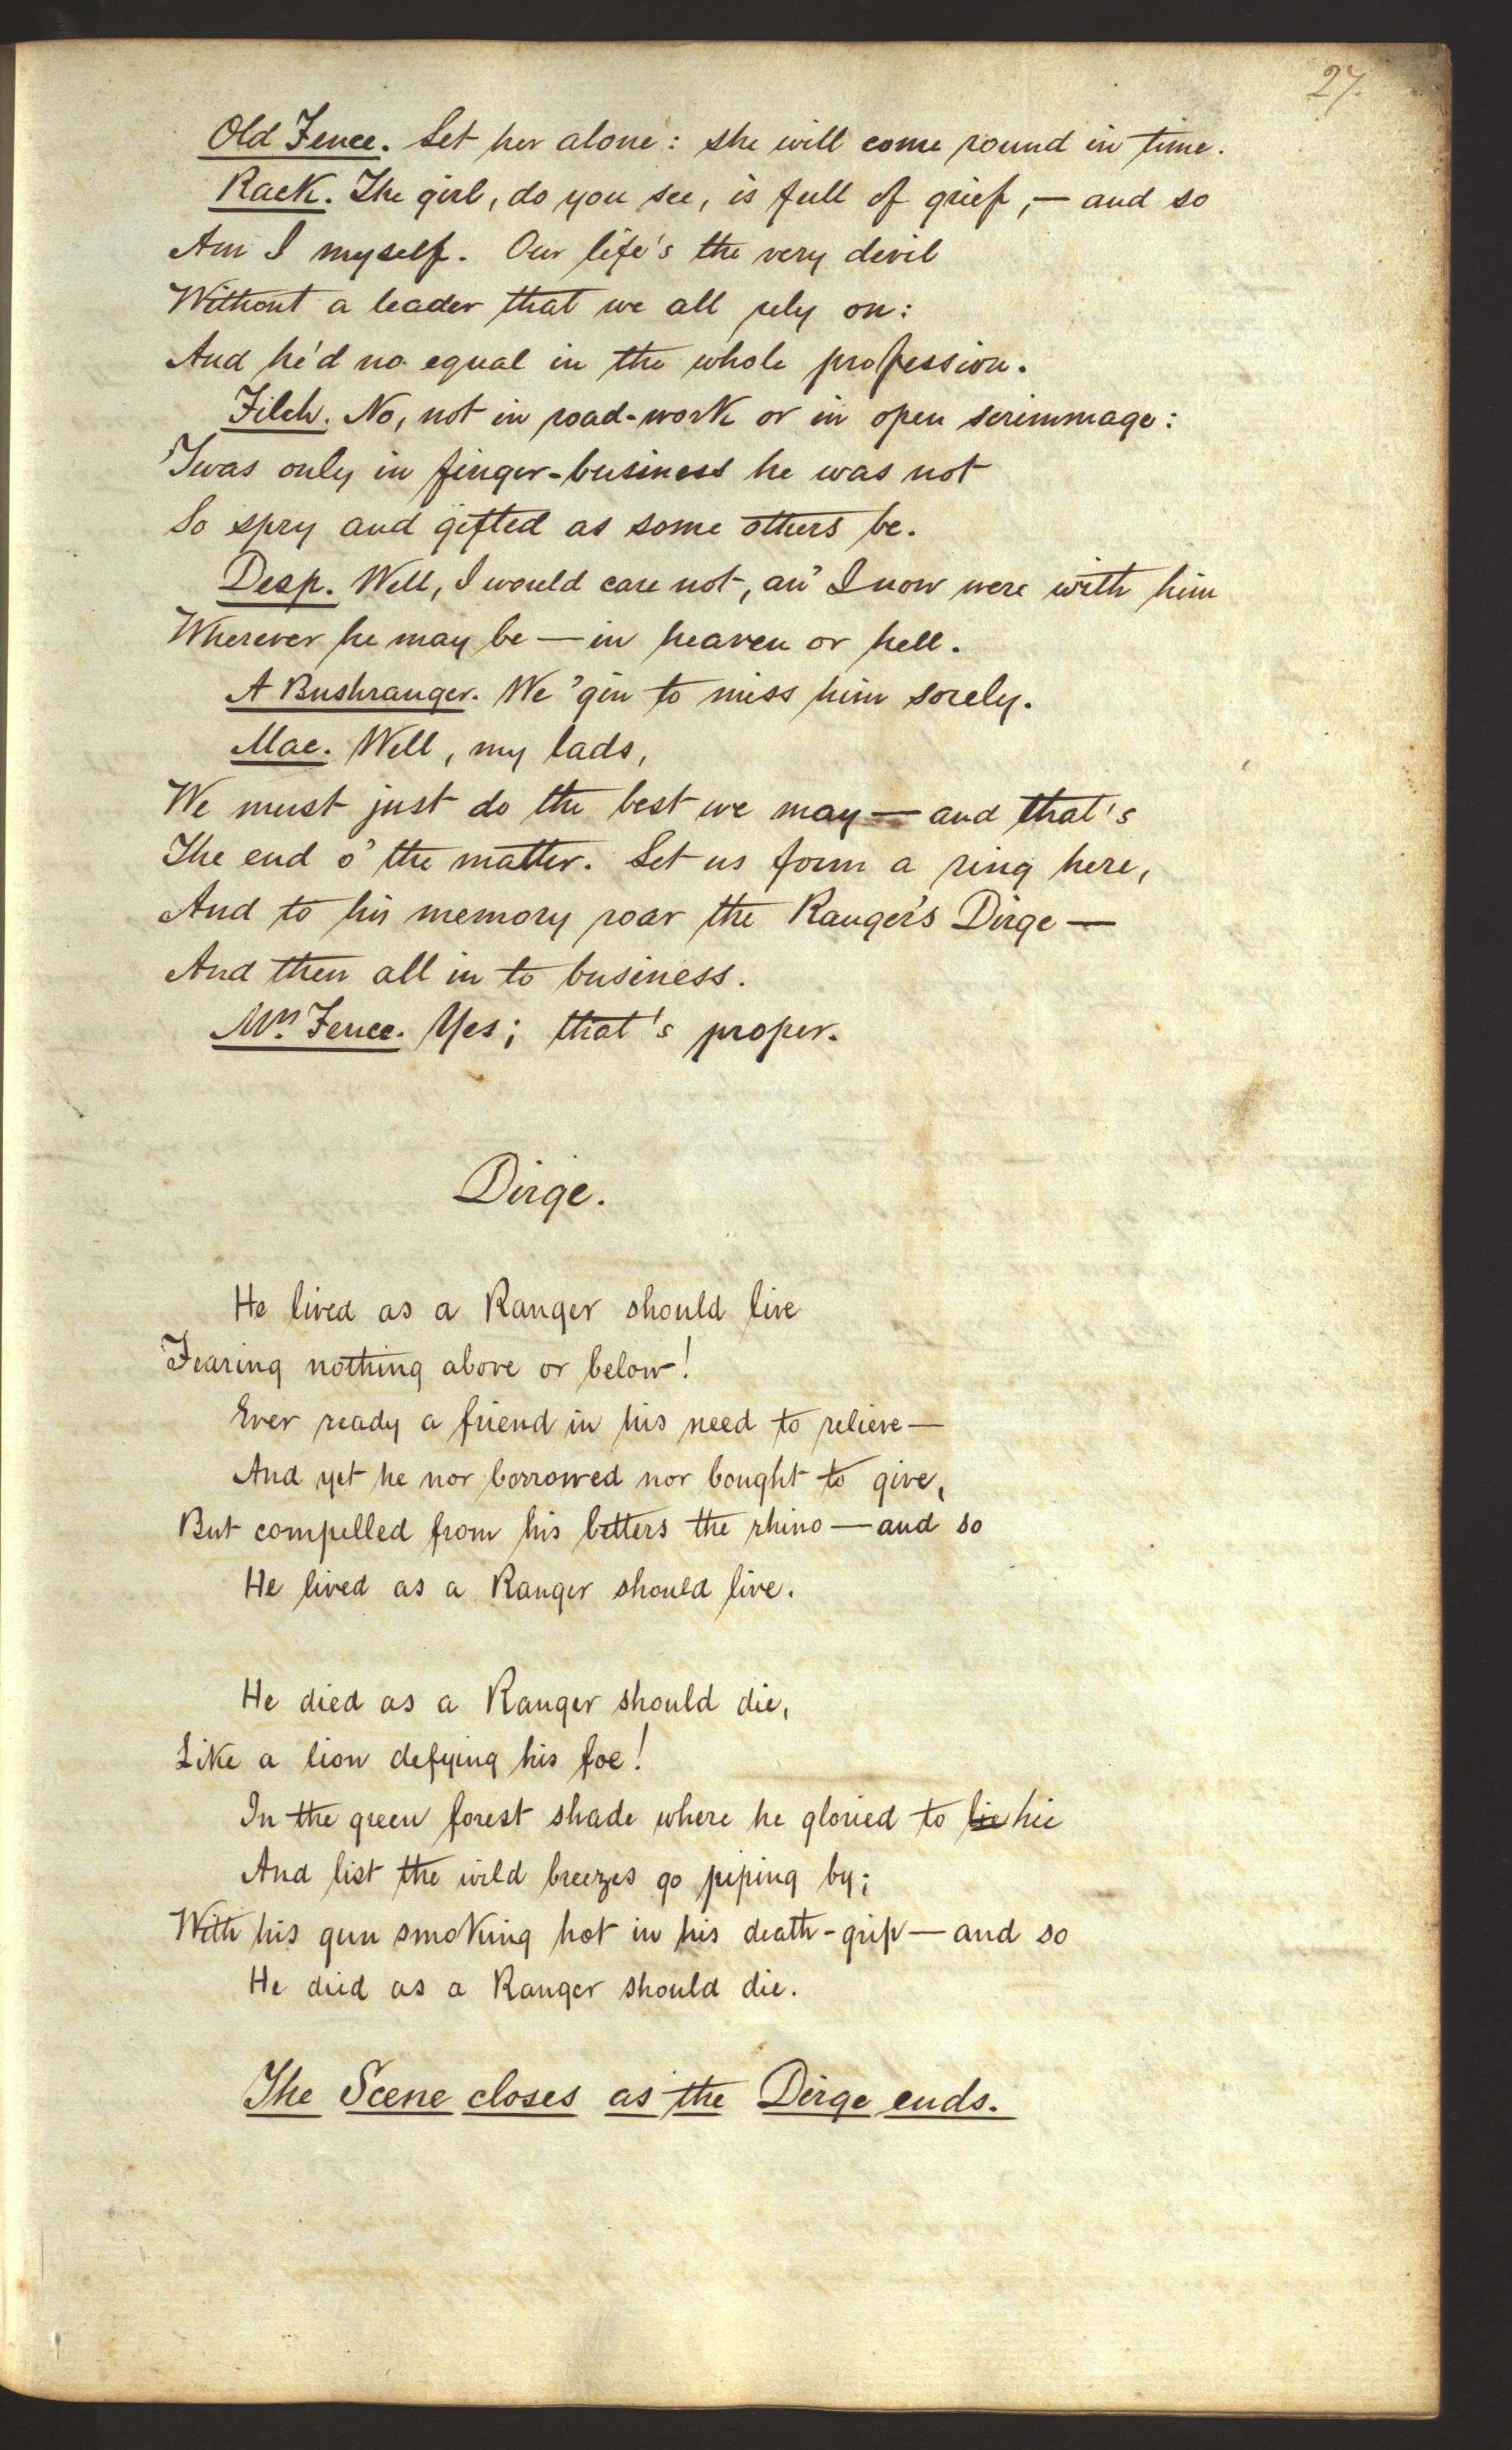 27.
Old Fence. Let her alone: she will come round in time.
Rack. The girl, do you see, is full of grief, — and so
Am I myself. Our life's the very devil
Without a leader that we all rely on:
And he'd no equal in the whole profession.
Filch. No, not in road-work or in open scrimmage:
'Twas only in finger-business he was not
So spry and gifted as some others be.
Desp. Well, I would care not, an' I now were with him
Wherever he may be — in heaven or hell.
A Bushranger. We 'gin to miss him sorely.
Mac. Well, my lads,
We must just do the best we may — and that's
The end o' the matter. Let us form a ring here,
And to his memory roar the Ranger's Dirge —
And then all in to business.
Mrs. Fence. Yes; that's proper.
Dirge.
He lived as a Ranger should live
Fearing nothing above or below!
Ever ready a friend in his need to relieve —
And yet he nor borrowed nor bought to give,
But compelled from his betters the rhino — and so
He lived as a Ranger should live.
He died as a Ranger should die,
Like a lion defying his foe!
In the green forest shade where he gloried to lie hie
And list the wild breezes go piping by;
With his gun smoking hot in his death-grip — and so
He died as a Ranger should die.
The Scene closes as the Dirge ends.